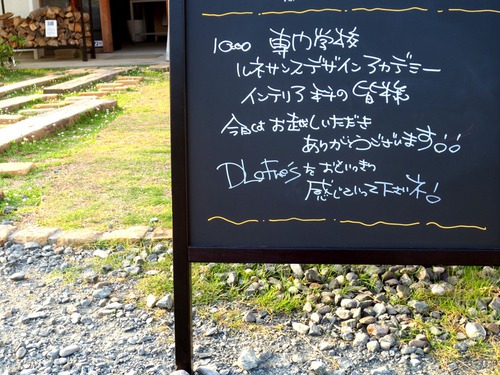 10:00 専門学校
ルネサンスデザインアカデミー
インテリア科の皆様
今日はお越しいただき
ありがとうございます!!
DLoFre'sをおもいっきり
感じとって下さいネ!